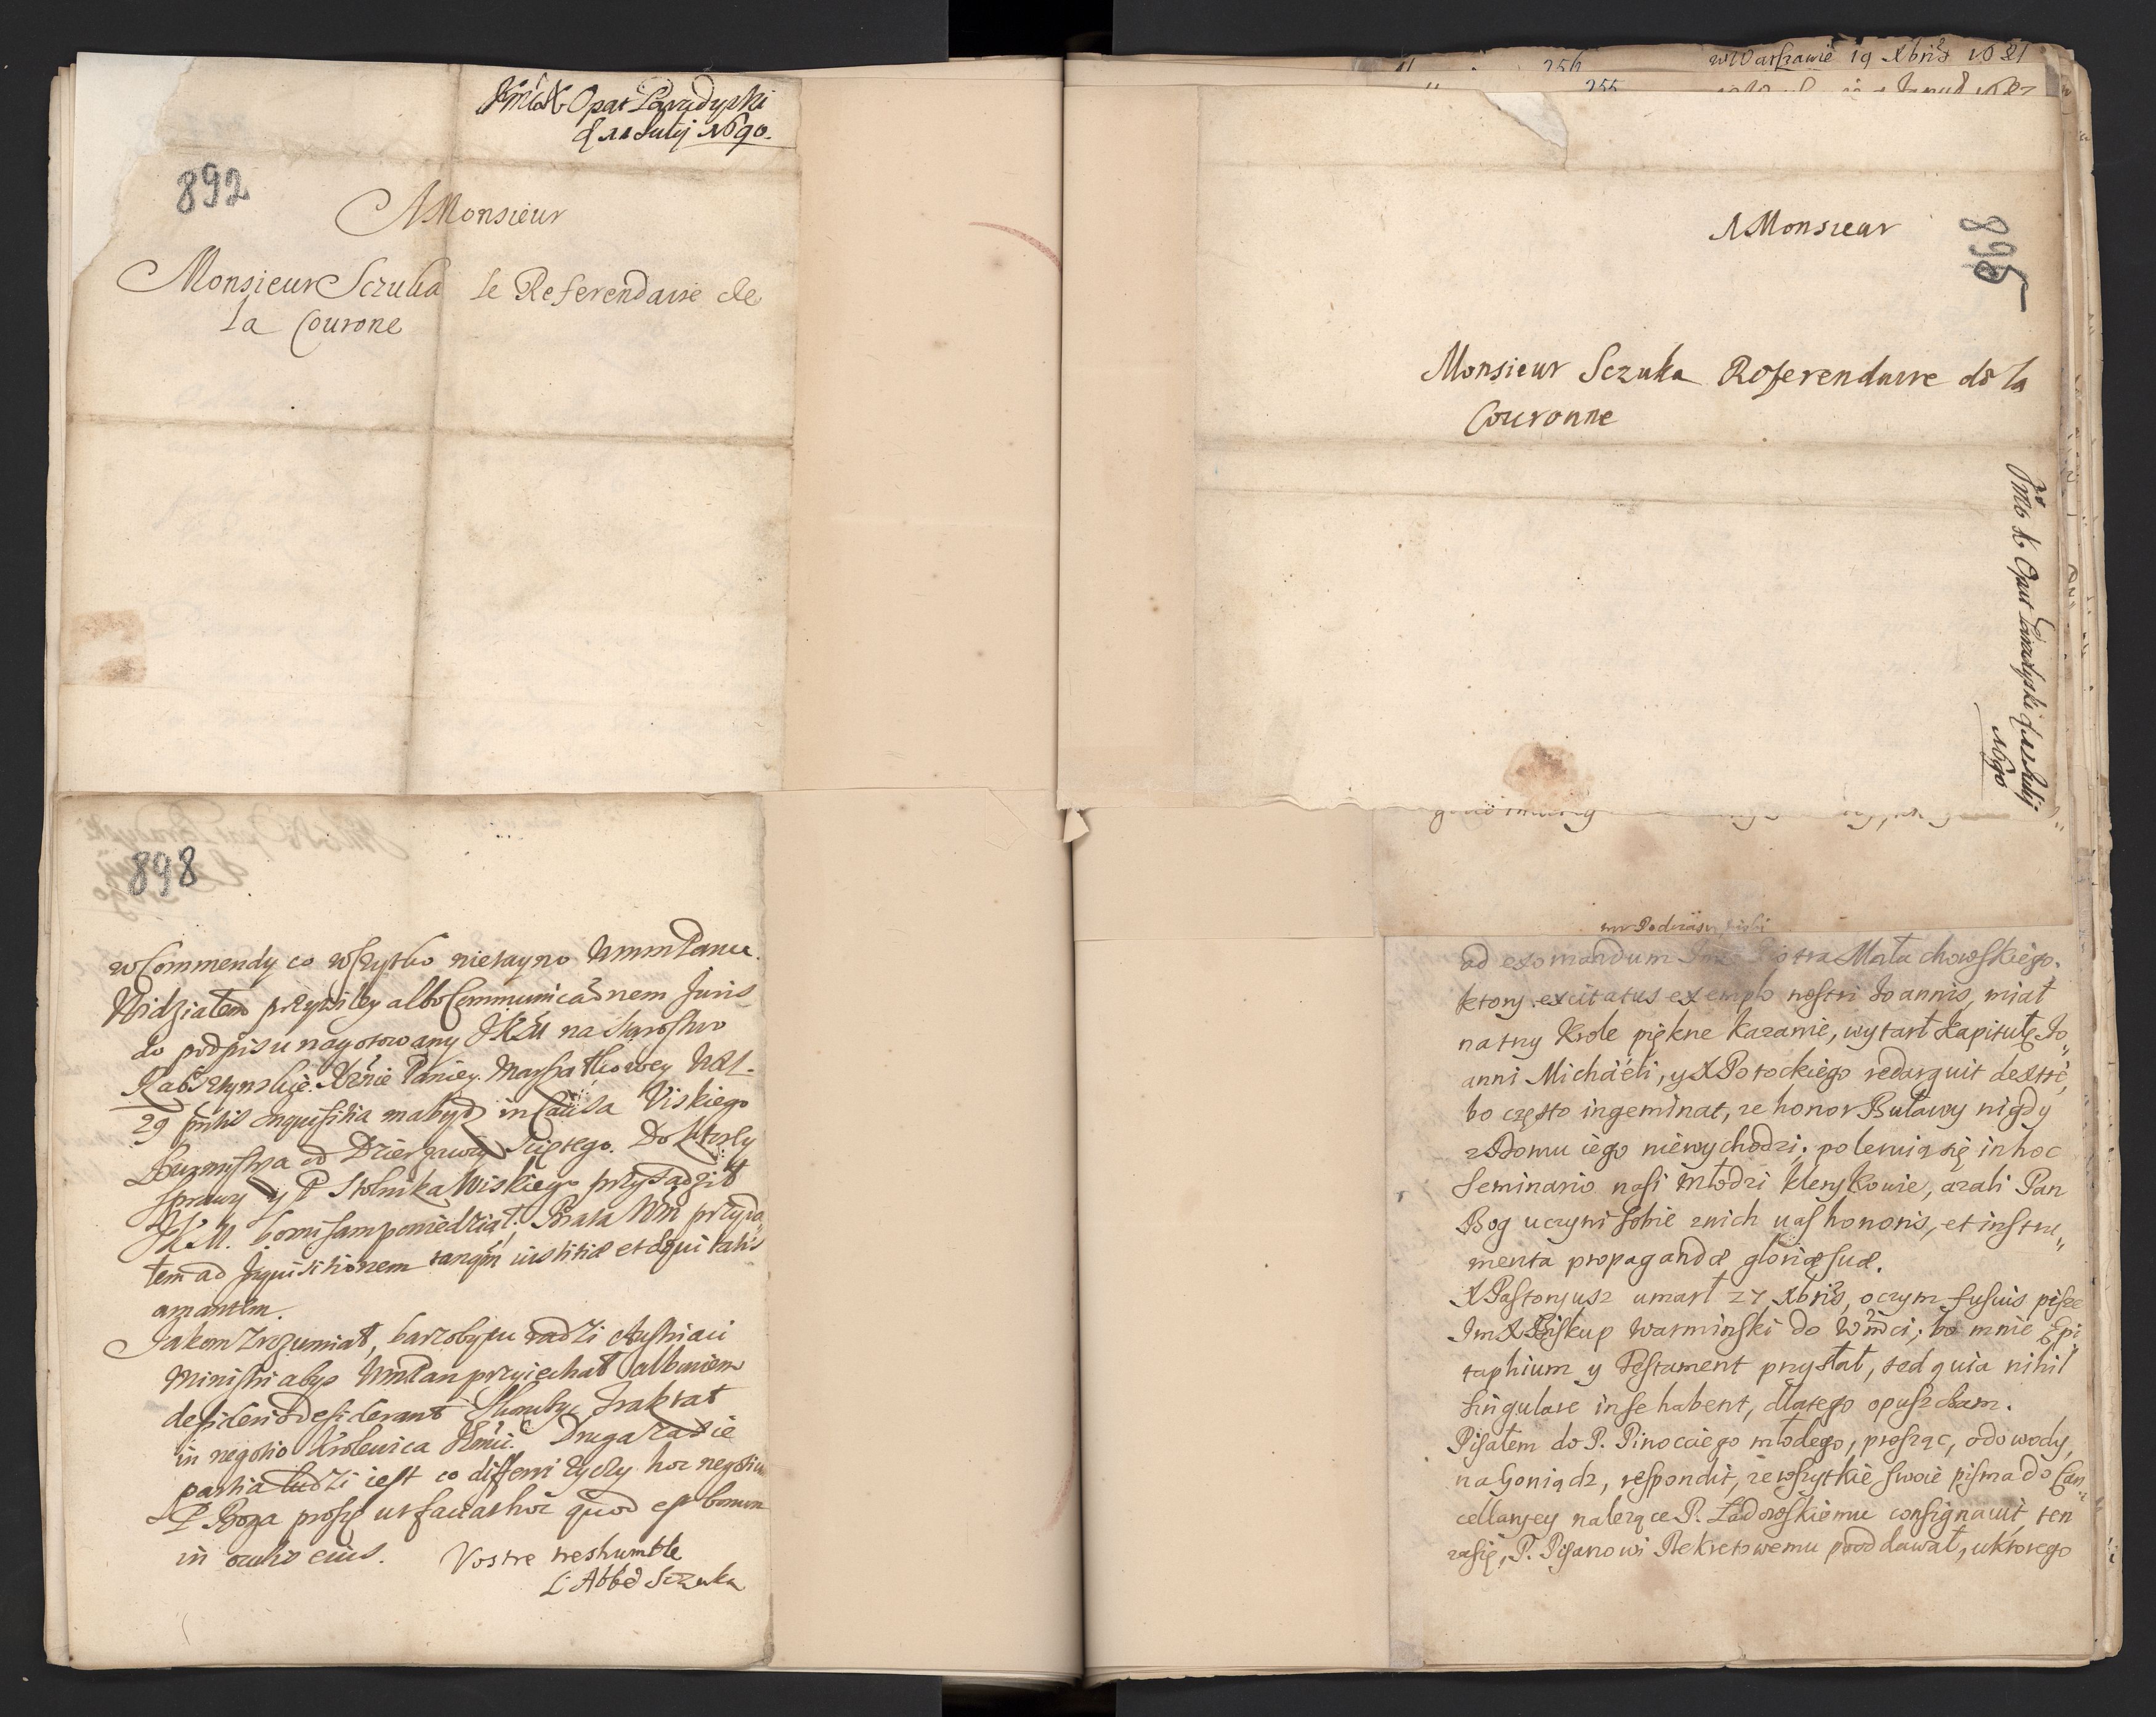 Opat Paradyski
Julij 1690.
892
A Monsieur
Monsieur Sczuka le Referendaire de
la Courone
898
w Commendy co wszytko nietayno WmmPanu.
Widziałem przywiley albo Communicaonem Juris
do podpisu nagotowany JKM na Starostwo
Paniey Marszałkowey
29 Inquisitia ma bydz in Causa Viskiego
Burmistrza od Dzierzawcy Sciętego. Do
sprawy y P Stolnika Wiskiego przysadził
JKM. bom sam powiedział. Brata Wm
tem ad Inquisitionem tanqm iustitiæ et æquitatis
amantem.
Jakom zrozumiał, barzoby tu radzi Austriaci
Ministri abys WmPan przyiechał albowiem
desiderio desiderant Traktat
in negotio Krolewica Jmci. Druga zasie
partia ludzi iest co differri zyczy hoc negotium
P Boga proszę ut faciat hoc quod est bonum
in oculis eius. Vostre treshumble
L'Abbé Sczuka
256 w Warszawie 19 Xbris 1681
255
A Monsieur
895
Monsieur Sczuka Referendaire de la
Couronne
Opat Paradyski
1690
ad exornandum Piotra Małachowskiego.
ktory excitatus exemplo nostri Joannis, miał
na trzy Krole piękne kazanie, wytarł Kapitułę Jo„
anni Michaeli, y X Potockiego redarguit dextre,
bo często ingeminat, ze honor Buławy nigdy
z Domu iego niewychodzi; poleruią się in hoc
Seminario nasi młodzi klerykowie, azali Pan
Bog uczyni sobie znich uas honoris, et instru„
menta propagandæ gloriæ suæ.
X Pastoryusz umarł 27 Xbris, o czym fusius pisze
Im X Biskup Warminski do Wmci; bo mnie Epi
taphium y Testament przysłał, sed quia nihil
singulare in se habent, dlatego opuszcam.
Pisałem do P. Pinocciego młodego, prosząc, o dowody,
na Goniądz, respondit, ze wszytkie swoie pisma do Can„
cellaryey nalezące P. Ładowskiemu consignauit, ten
zasię, P. Pisarowi Dekretowemu pooddawał, u ktorego